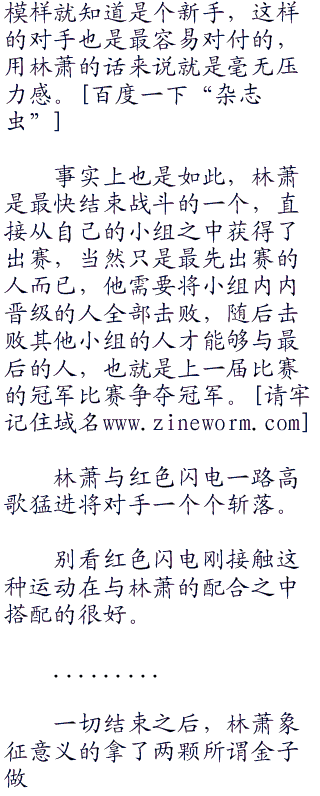 模样就知道是个新手，这样
的对手也是最容易对付的，
用林萧的话来说就是毫无压
力感。[百度一下“杂志
虫”]
事实上也是如此，林萧
是最快结束战斗的一个，直
接从自己的小组之中获得了
出赛，当然只是最先出赛的
人而已，他需要将小组内内
晋级的人全部击败，随后击
败其他小组的人才能够与最
后的人，也就是上一届比赛
的冠军比赛争夺冠军。[请牢
记住域名www.zineworm.com]
林萧与红色闪电一路高
歌猛进将对手一个个斩落。
别看红色闪电刚接触这
种运动在与林萧的配合之中
搭配的很好。
.........
一切结束之后，林萧象
征意义的拿了两颗所谓金子
做